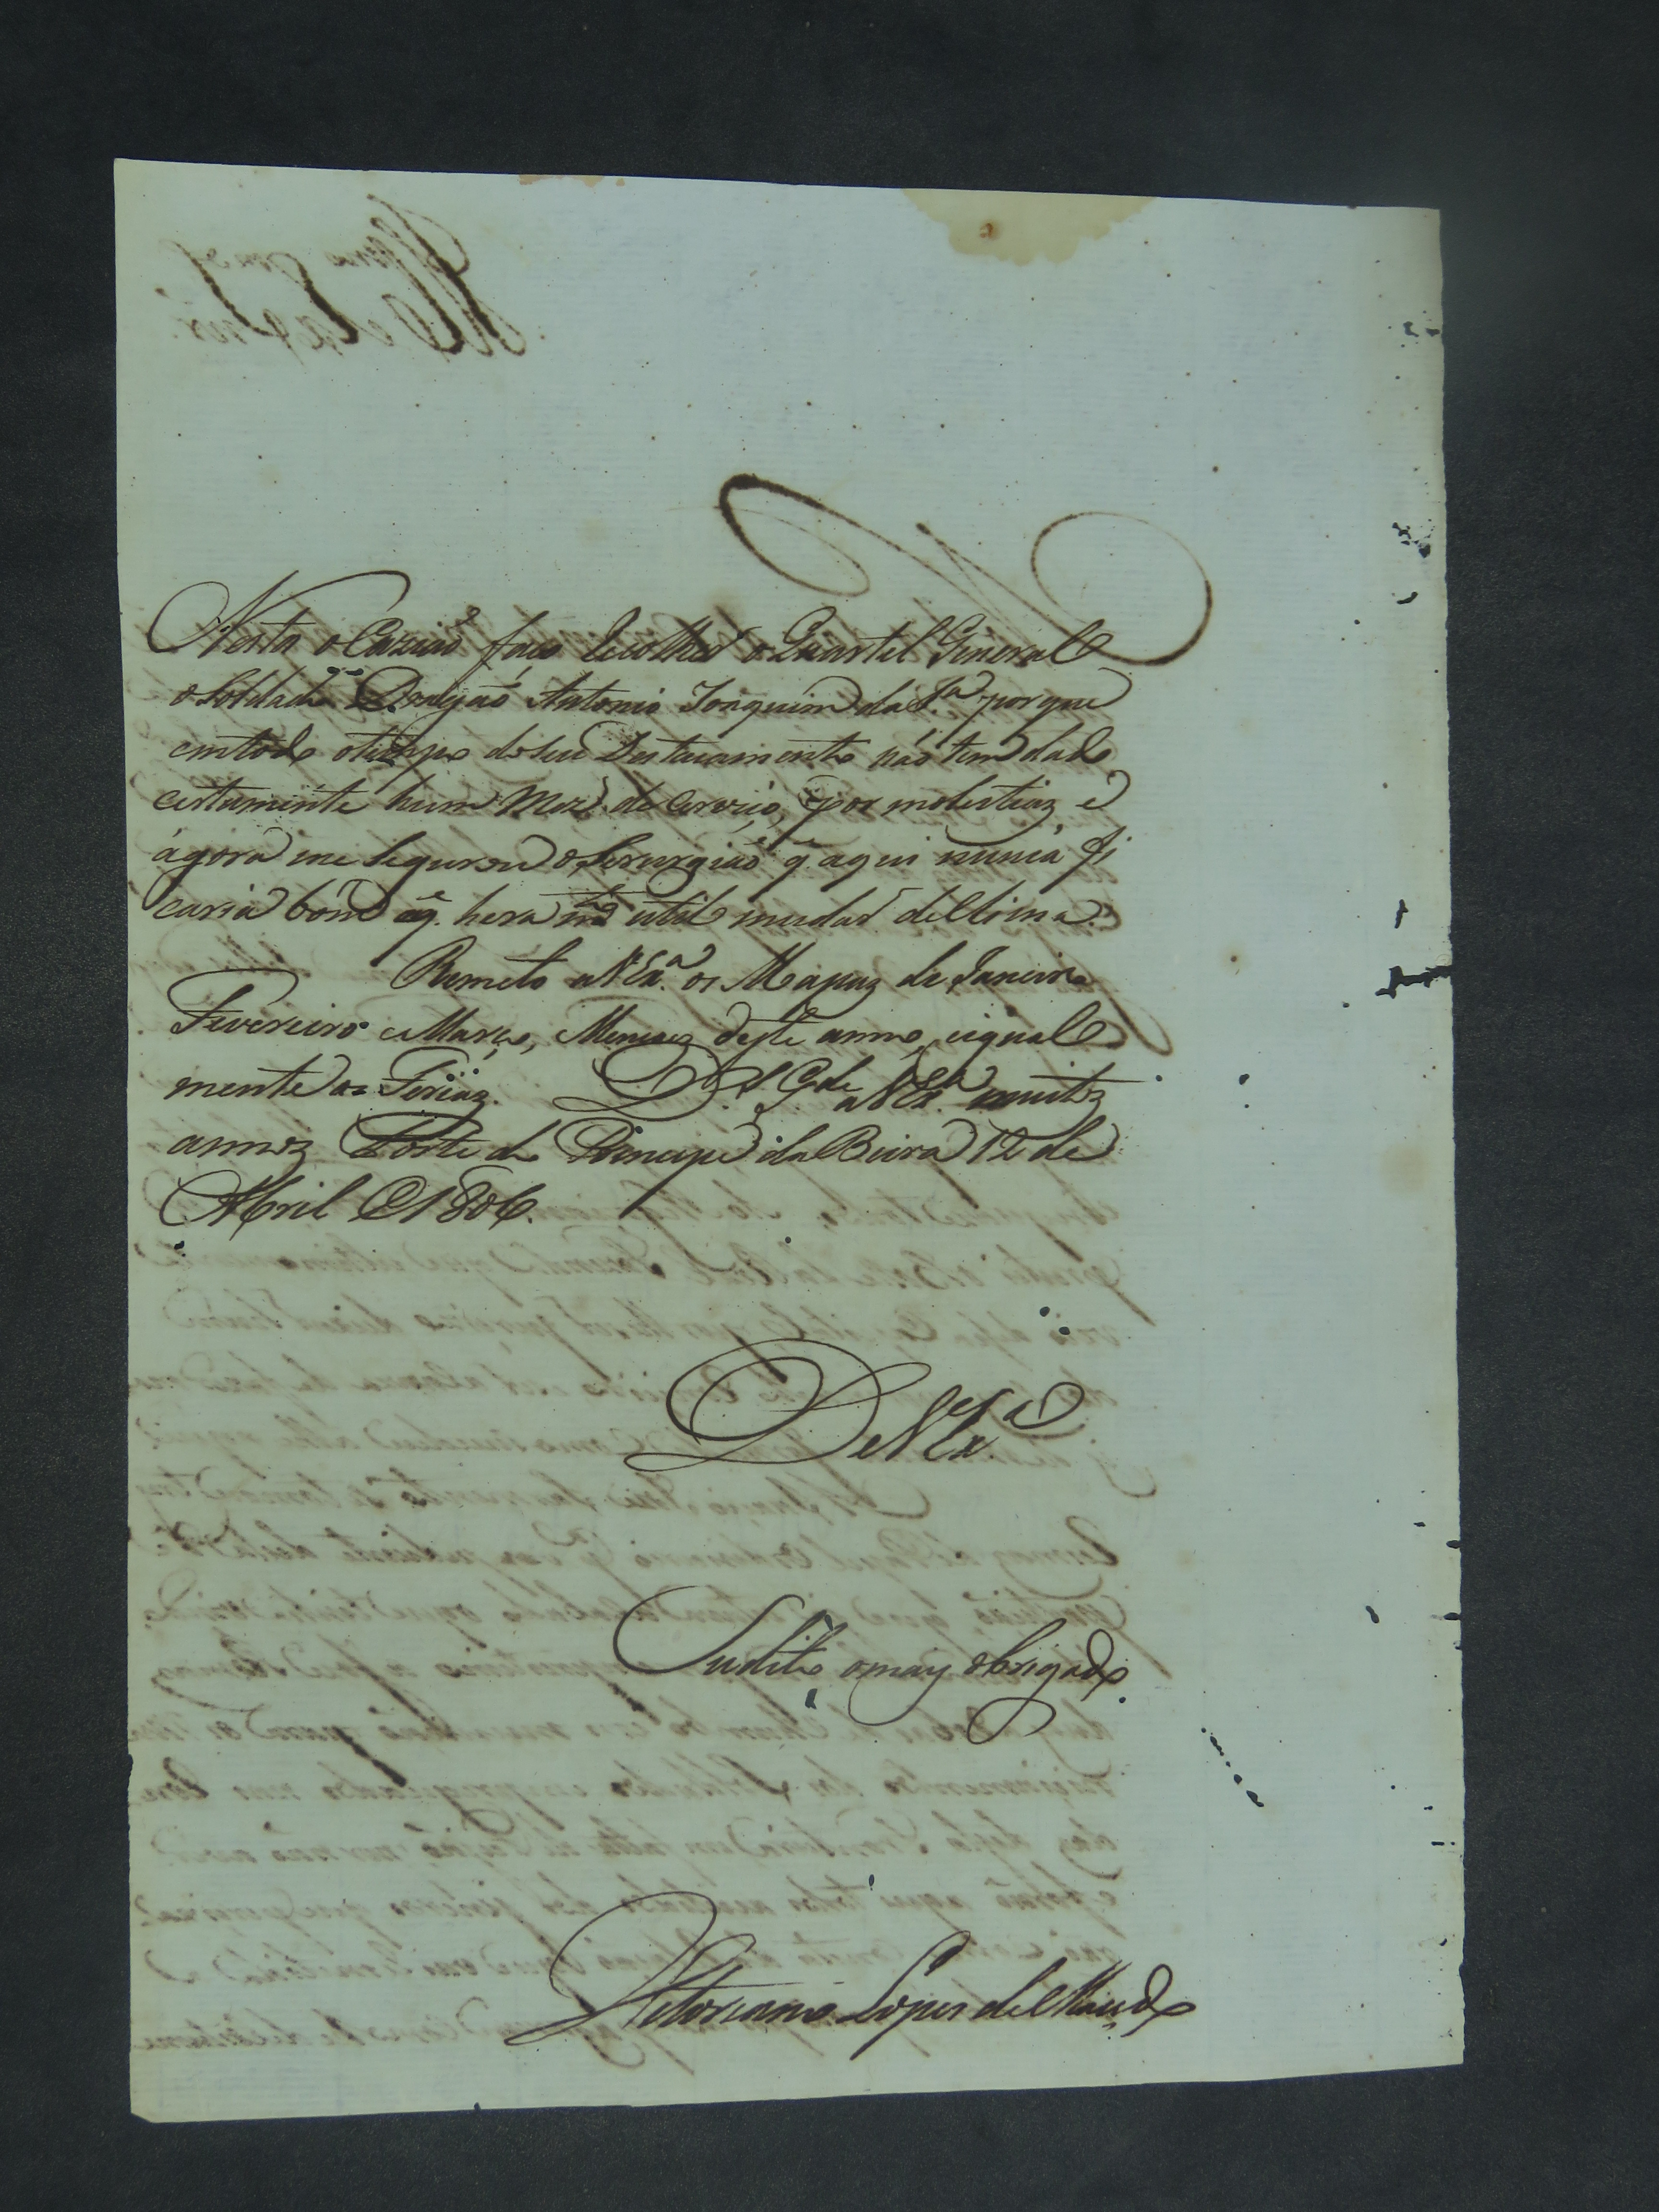 Nesta oCaziaõ faço recolher o Quartel General
o Soldado Dragaõ Antonio Joaquim da S.ª porque
emtodo otempo doseu Destacamento naõ tem dado
certamente hum Mez de Serviço, por molestiaz, e
ágora me segurou o Serurgiaõ q̃. aqui nunca fi
caria bom eq̃. hera m.to util mudar deClima.
Remeto aVEx.ª os Mapaz de Janeiro
Fevereiro eMarço, Mezes deste anno, eigual
mente as Feriaz. D.s G.de aVEx.ª muitoz
annoz Forte do Principe daBeira 12 de
Abril de 1806.
DeVEx.ª
Sudito omaiz obrigado
Vitoriano Lopes deMacedo